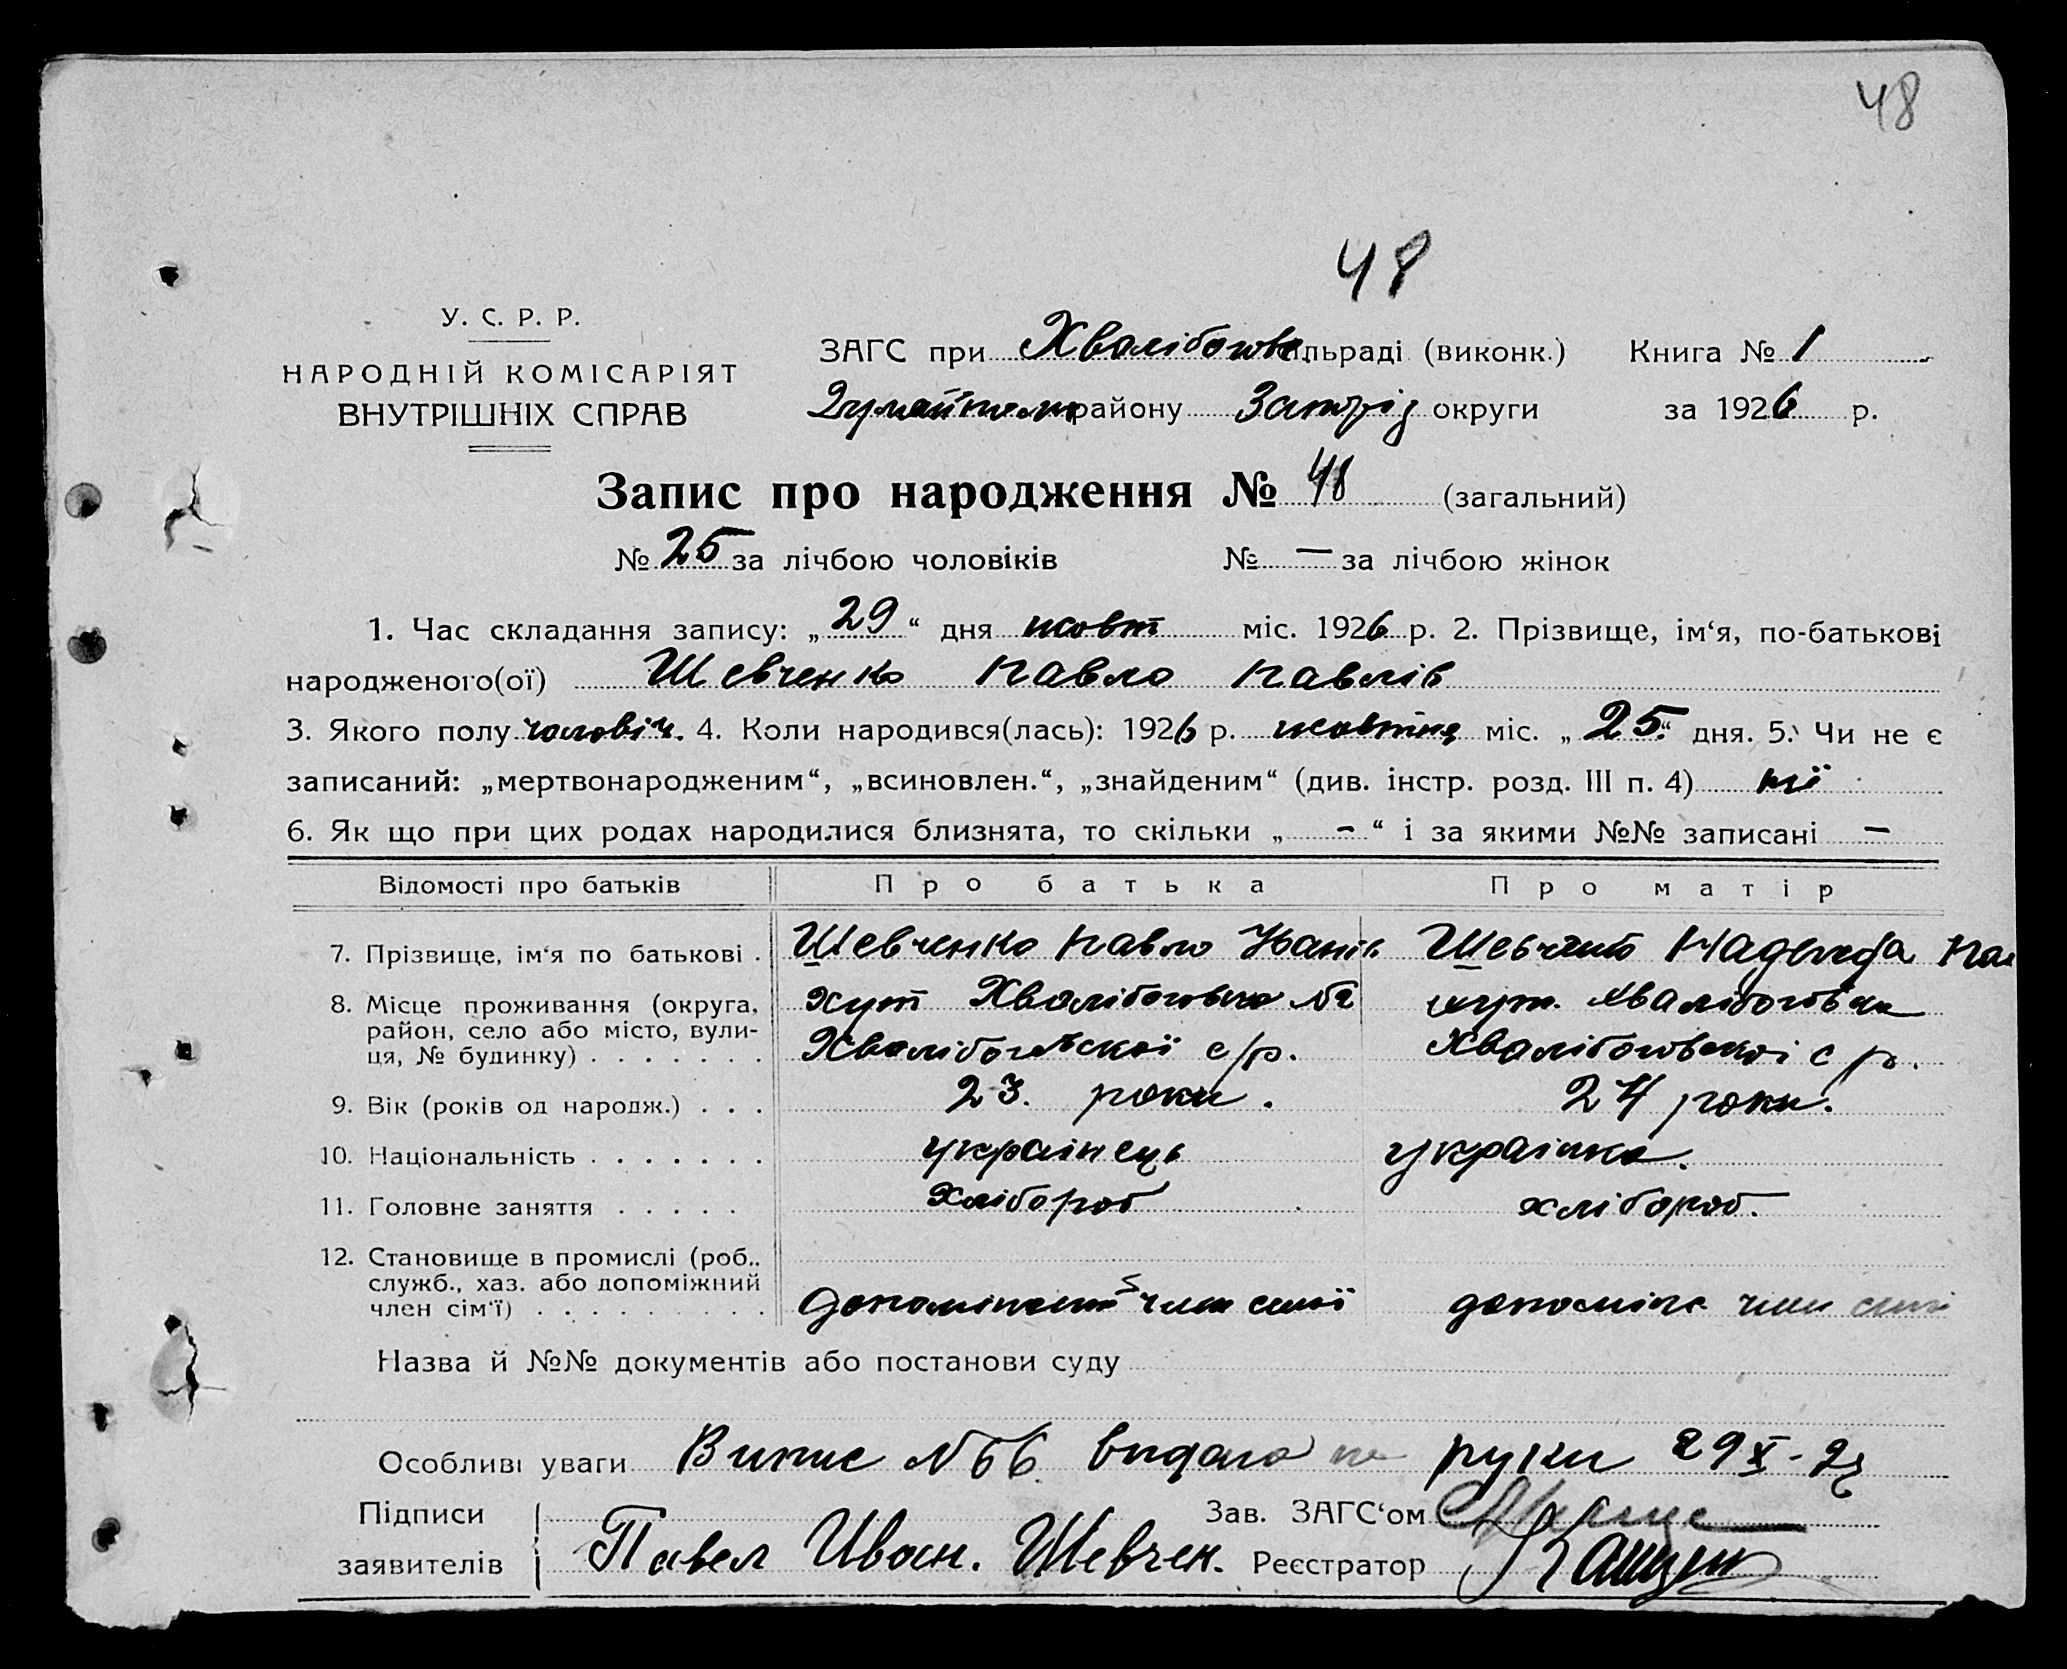 48
48
У. С. Р. Р.
НАРОДНІЙ КОМІСАРІЯТ
ВНУТРІШНІХ СПРАВ
ЗАГС при Хвалібогов. сільраді (виконк.) Книга № 1
району Запоріз округи за 1926 р.
Запис про народження № 48 (загальний)
№ 25 за лічбою чоловіків № — за лічбою жінок
1. Час складання запису: „29“ дня жовт міс. 1926 р. 2. Прізвище, ім‘я, по-батькові
народженого(ої) Шевченко Павло Павлів
3. Якого полу чоловіч. 4. Коли народився(лась): 1926 р. жовтня міс. „25.“ дня. 5. Чи не є
записаний: „мертвонародженим“, „всиновлен.“, „знайденим“ (див. інстр. розд. III п. 4) ні
6. Як що при цих родах народилися близнята, то скільки „ - “ і за якими №№ записані —
Відомості про батьків Про батька Про матір
7. Прізвище, ім‘я по батькові . Шевченко Павло Іванів Шевченко Надежда Пав
8. Місце проживання (округа, район, село або місто, вулиця, № будинку) . . . . . . .
хут Хвалібоговка № хут. Хвалібоговка
Хвалібогівскої с/р. Хвалібоговскої с р.
9. Вік (років од народж.) . . . 23. роки. 24 роки.
10. Національність . . . . . . . українець українка.
11. Головне заняття . . . . . Хлібороб хлібороб.
12. Становище в промислі (роб., служб., хаз. або допоміжний член сім‘ї) . . . . . . . . .
допоміжний член сімї допоміж член сімї
Назва й №№ документів або постанови суду
Особливі уваги Випис № 66 видано на руки 29 X - 26
Підписи Зав. ЗАГС‘ом
заявителів Павел Иван. Шевчен. Реєстратор